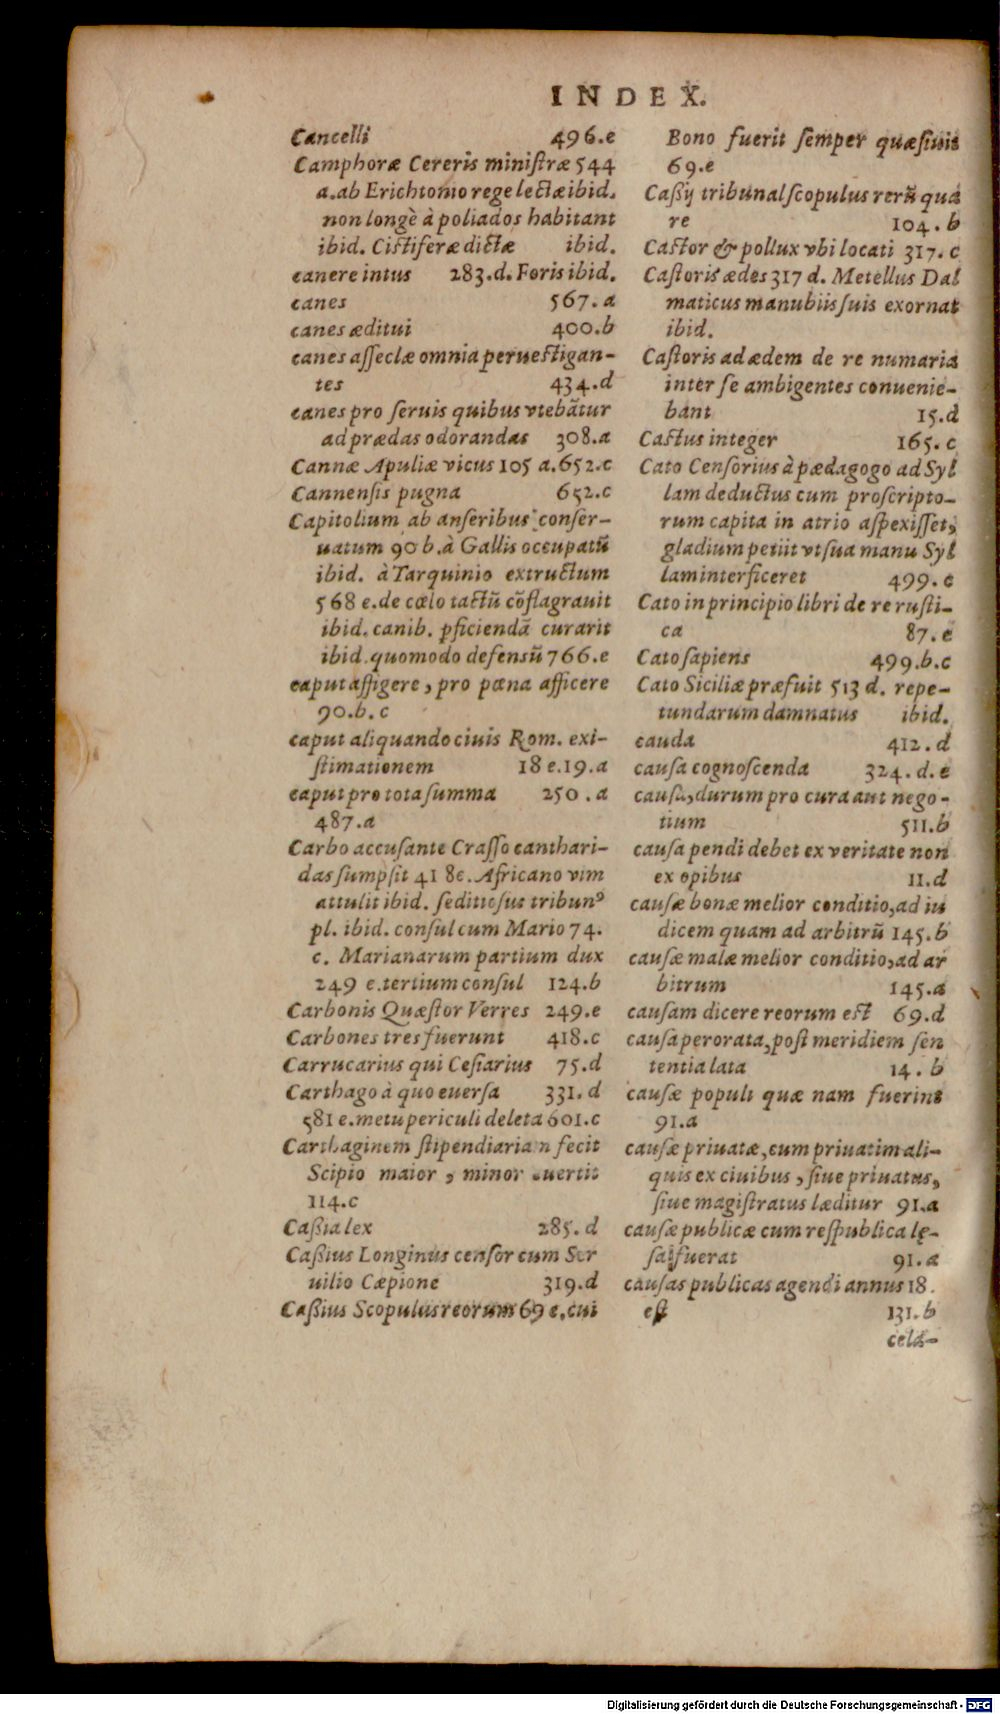 INDEX.
Cancelli 496.e
Camphoræ Cereris miniſtræ 544
a. ab Erichtonio rege lectæ ibid.
non longè à poliados habitant
ibid. Ciſtiferæ dictæ ibid.
canere intus 283.d. Foris ibid.
canes 567.a
canes æditui 400.b
canes aſſeclæ omnia perueſtigan-
tes 434.d
canes pro ſeruis quibus vtebãtur
ad prædas odorandas 308.a
Cannæ Apuliæ vicus 105 a. 652.c
Cannenſis pugna 652.c
Capitolium ab anſeribus conſer-
uatum 90 b. à Gallis occupatũ
ibid. à Tarquinio extructum
568 e. de cœlo tactũ cõflagrauit
ibid. canib. pſiciendã curarit
ibid. quomodo defensũ 766.e
caput affigere, pro pœna afficere
90.b.c
caput aliquando ciuis Rom. exi-
ſtimationem 18 e. 19.a
caput pro tota ſumma 250.a
487.a
Carbo accuſante Craſſo canthari-
das ſumpſit 41 8e. Africano vim
attulit ibid. ſeditioſus tribunꝰ
pl. ibid. conſul cum Mario 74.
c. Marianarum partium dux
249 e. tertium conſul 124.b
Carbonis Quæſtor Verres 249.e
Carbones tres fuerunt 418.c
Carrucarius qui Ceſiarius 75.d
Carthago à quo euerſa 331.d
581 e. metu periculi deleta 601.c
Carthaginem ſtipendiariam fecit
Scipio maior, minor euertit
114.c
Caßia lex 285.d
Caßius Longinus cenſor cum Ser
uilio Cæpione 319.d
Caßius Scopulus reorum 69 e. cui
Bono fuerit ſemper quæſiuit
69.e
Caßij tribunal ſcopulus rerũ qua
re 104.b
Caſtor & pollux vbi locati 317.c
Caſtoris ædes 317 d. Metellus Dal
maticus manubiis ſuis exornat
ibid.
Caſtoris ad ædem de re numaria
inter ſe ambigentes conuenie-
bant 15.d
Caſtus integer 165.c
Cato Cenſorius à pædagogo ad Syl
lam deductus cum proſcripto-
rum capita in atrio aſpexiſſet,
gladium petiit vt ſua manu Syl
lam interficeret 499.c
Cato in principio libri de re ruſti-
ca 87.e
Cato ſapiens 499.b.c
Cato Siciliæ præfuit 513 d. repe-
tundarum damnatus ibid.
cauda 412.d
cauſa cognoſcenda 324.d.e
cauſa, durum pro cura aut nego-
tium 511.b
cauſa pendi debet ex veritate non
ex opibus 11.d
cauſæ bonæ melior conditio, ad iu
dicem quam ad arbitrũ 145.b
cauſæ malæ melior conditio, ad ar
bitrum 145.a
cauſam dicere reorum eſt 69.d
cauſa perorata, poſt meridiem ſen
tentia lata 14.b
cauſæ populi quæ nam fuerint
91.a
cauſæ priuatæ, cum priuatim ali-
quis ex ciuibus, ſiue priuatus,
ſiue magiſtratus læditur 91.a
cauſæ publicæ cum reſpublica lę-
ſa fuerat 91.a
cauſas publicas agendi annus 18.
eſt 131.b
cela-
Digitalisierung gefördert durch die Deutsche Forschungsgemeinschaft - DFG